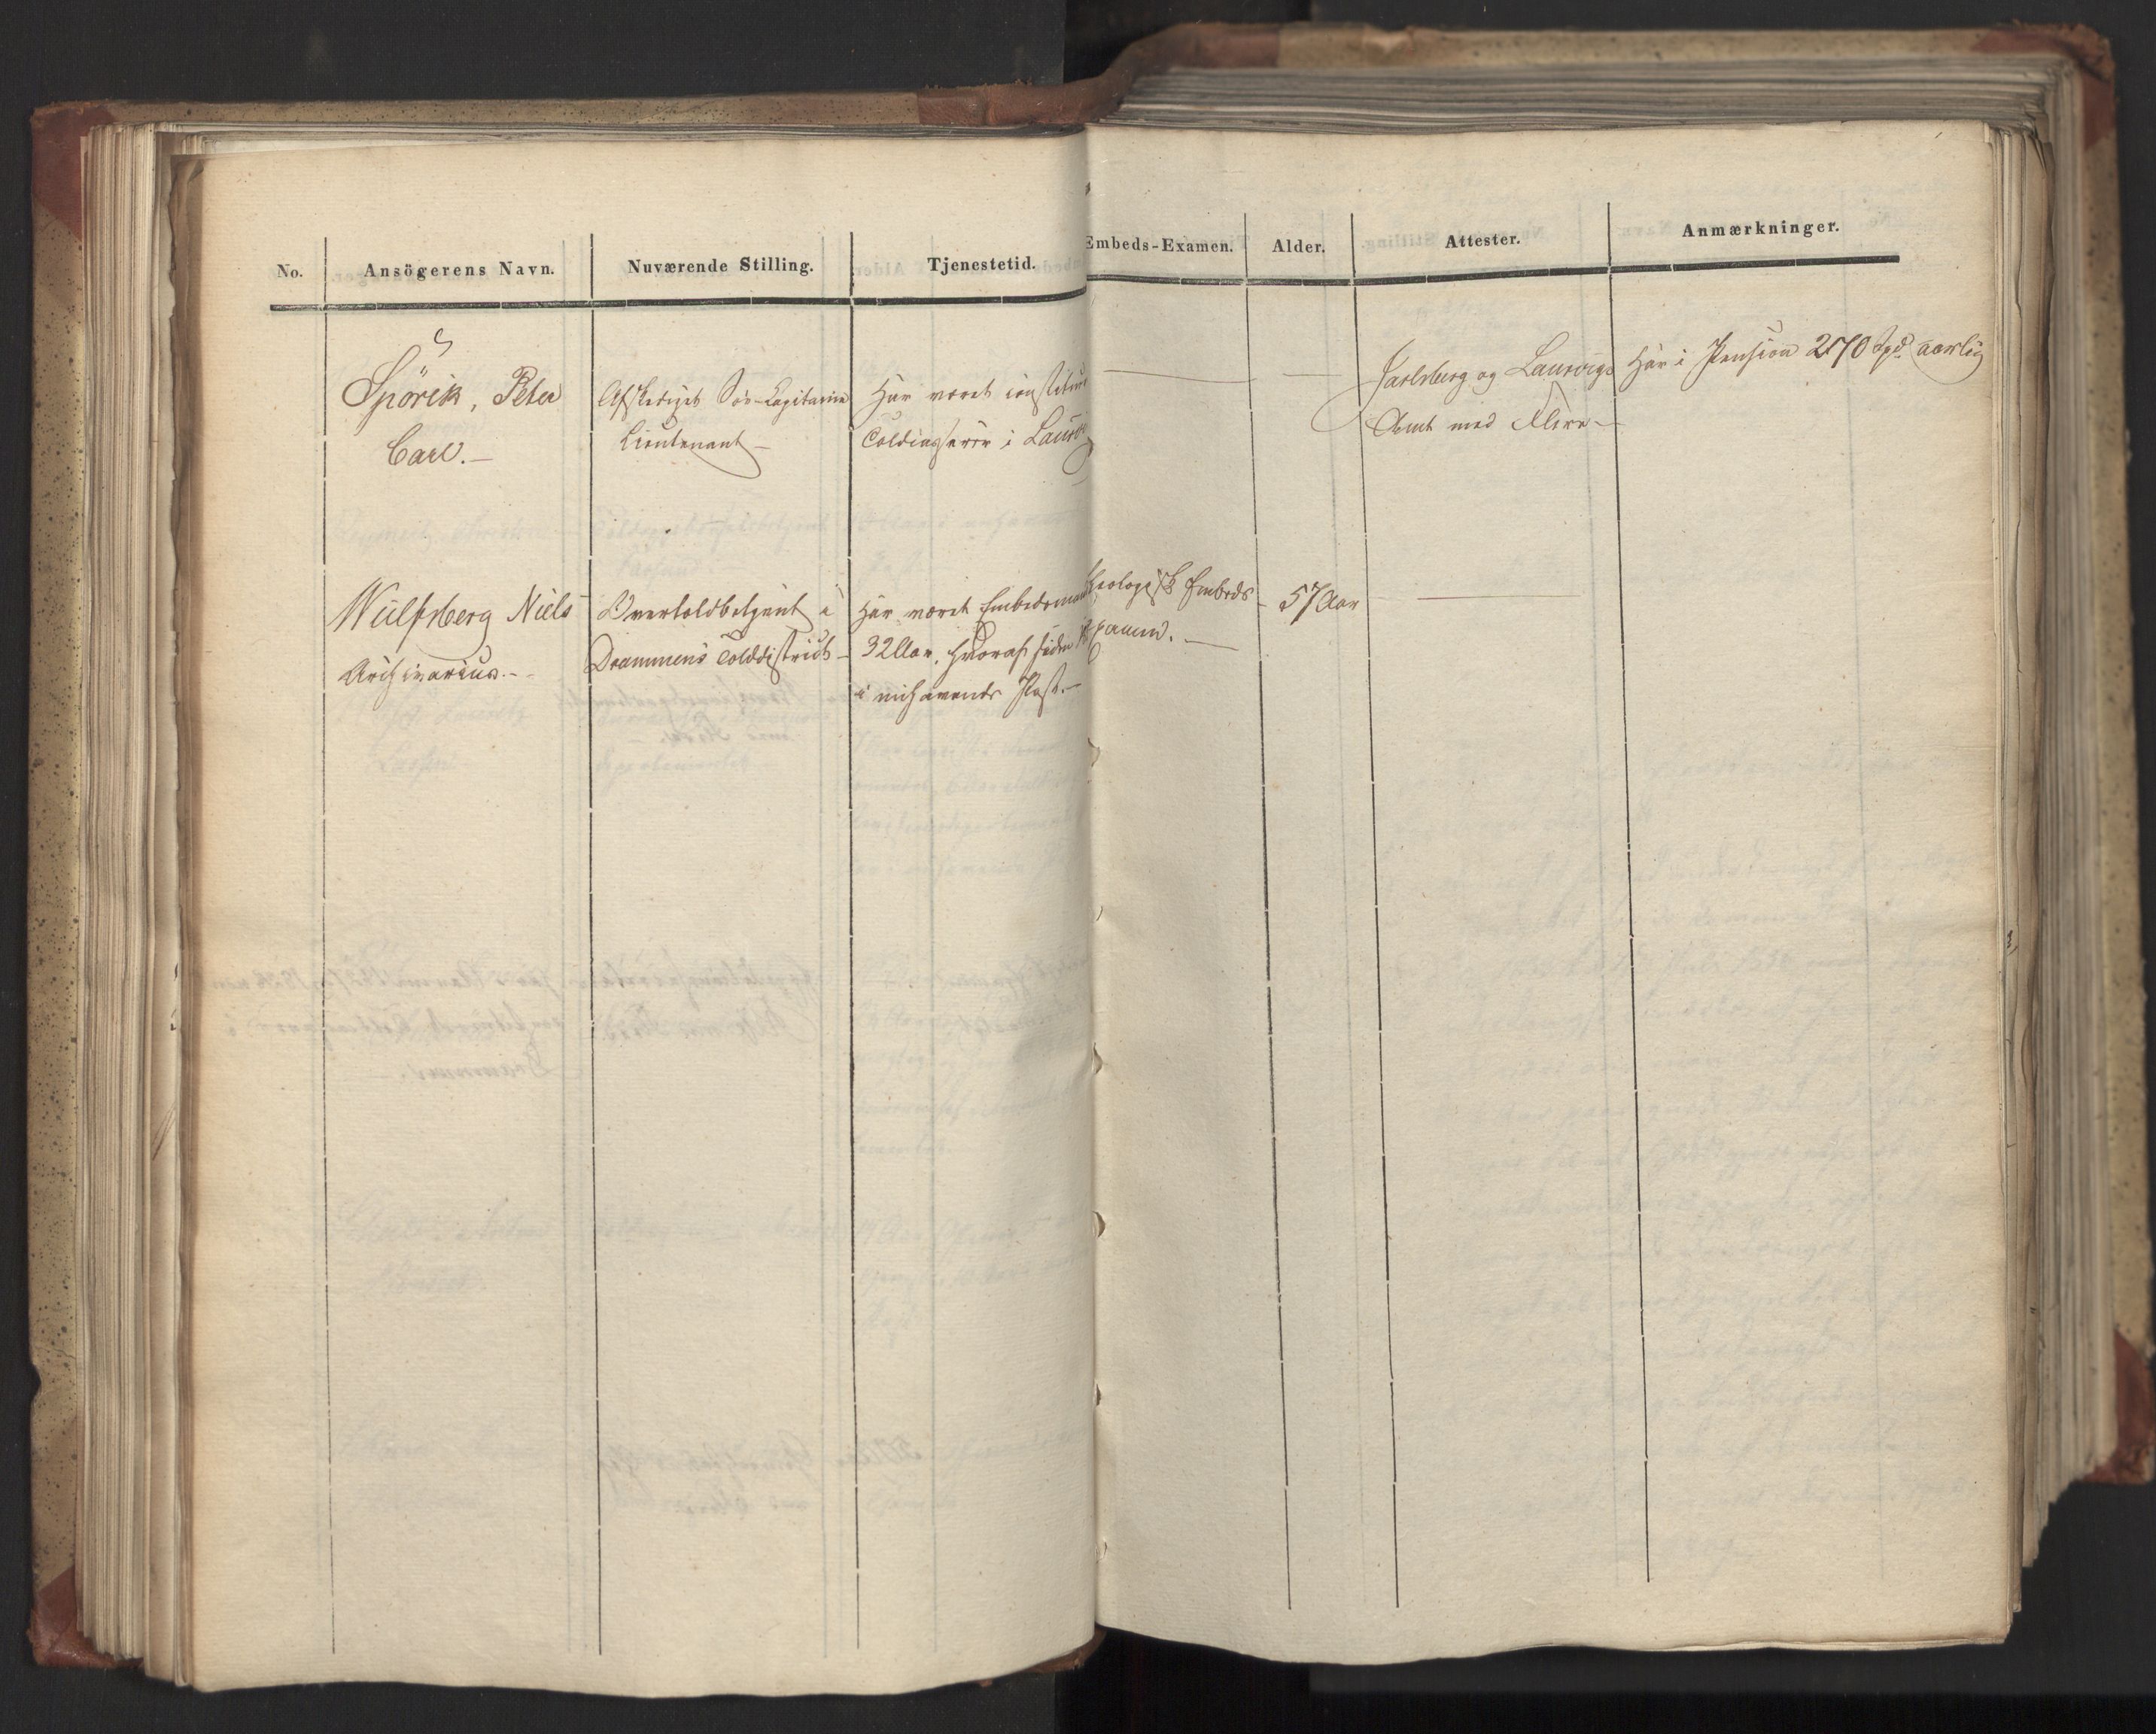 No. Ansögerens Navn. Nuværende Stilling. Tjenestetid. Embeds-Examen. Alder. Attester. Anmærkninger.
Spörck, Peter
Carl.—
Afskediget Söe-Capitain
Lieutenant—
Har været constitueret
Toldcasserer i Laurvig
—
—
Jarlsberg og Laurvigs
Amt med Flere—
Har i Pension 270 Spd. aarlig
Wulfsberg Niels
Archivarius.—
Overtoldbetjent i
Drammens Tolddistrict—
Har været Embedsmand
32 Aar, hvoraf siden
i nuhavende Post.—
theologisk Embeds
Examen.—
57 Aar
—